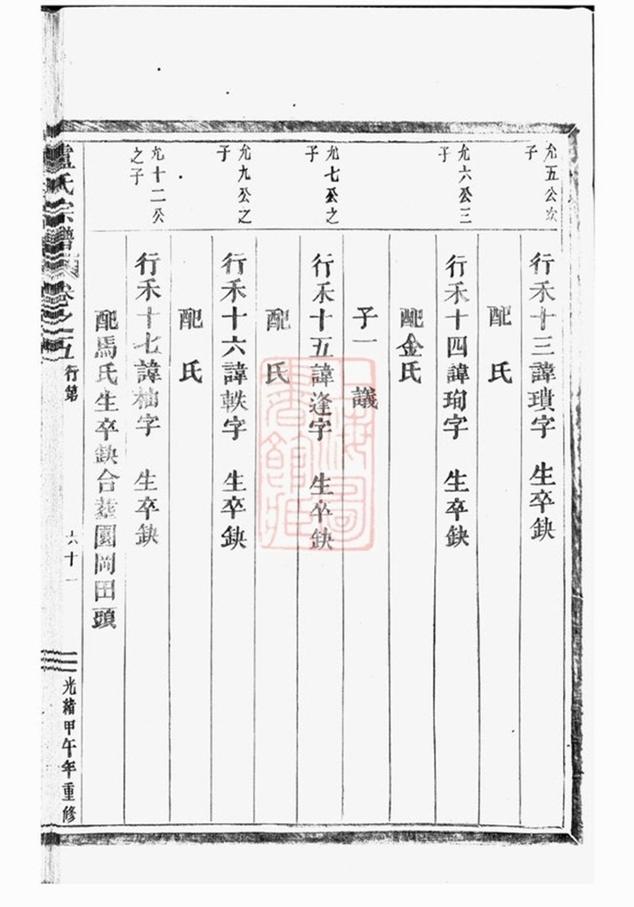 允五公次子
行禾十三諱瓚字 生卒缺
配 氏
允六公三子
行禾十四諱珣字 生卒缺
配金氏
子一 議
允七公之子
行禾十五諱逢字 生卒缺
配 氏
允九公之子
行禾十六諱軼字 生卒缺
配 氏
允十二公之子
行禾十七諱 字 生卒缺
配馬氏生卒缺合葬園岡田頭
盧氏宗譜 卷之五 行第 六十一 光緒甲午年重修
上海圖書館藏